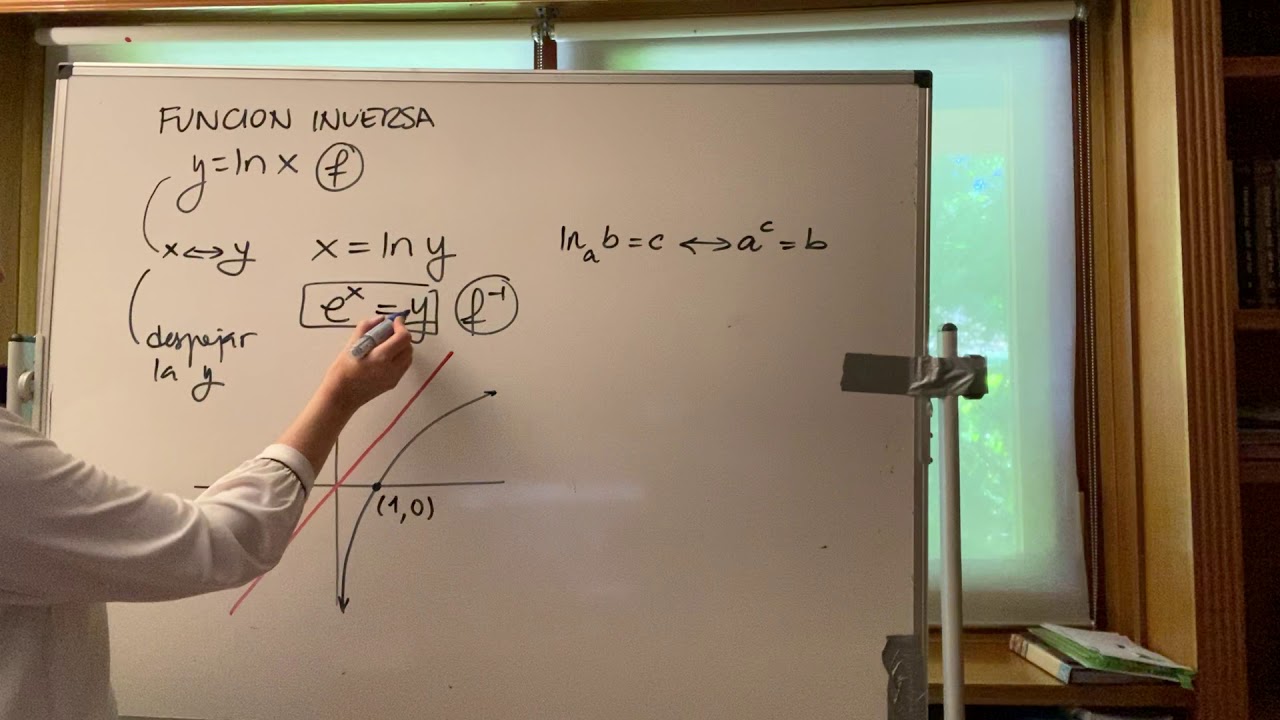 FUNCION INVERSA
y = ln x f
x ↔ y x = ln y
e^x = y f^-1
despejar
la y
ln_a b = c ↔ a^c = b
(1,0)